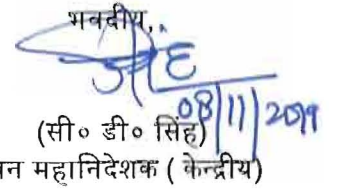 भवदीय,
08/11/2019
(सी० डी० सिंह)
न महानिदेशक ( केन्द्रीय)